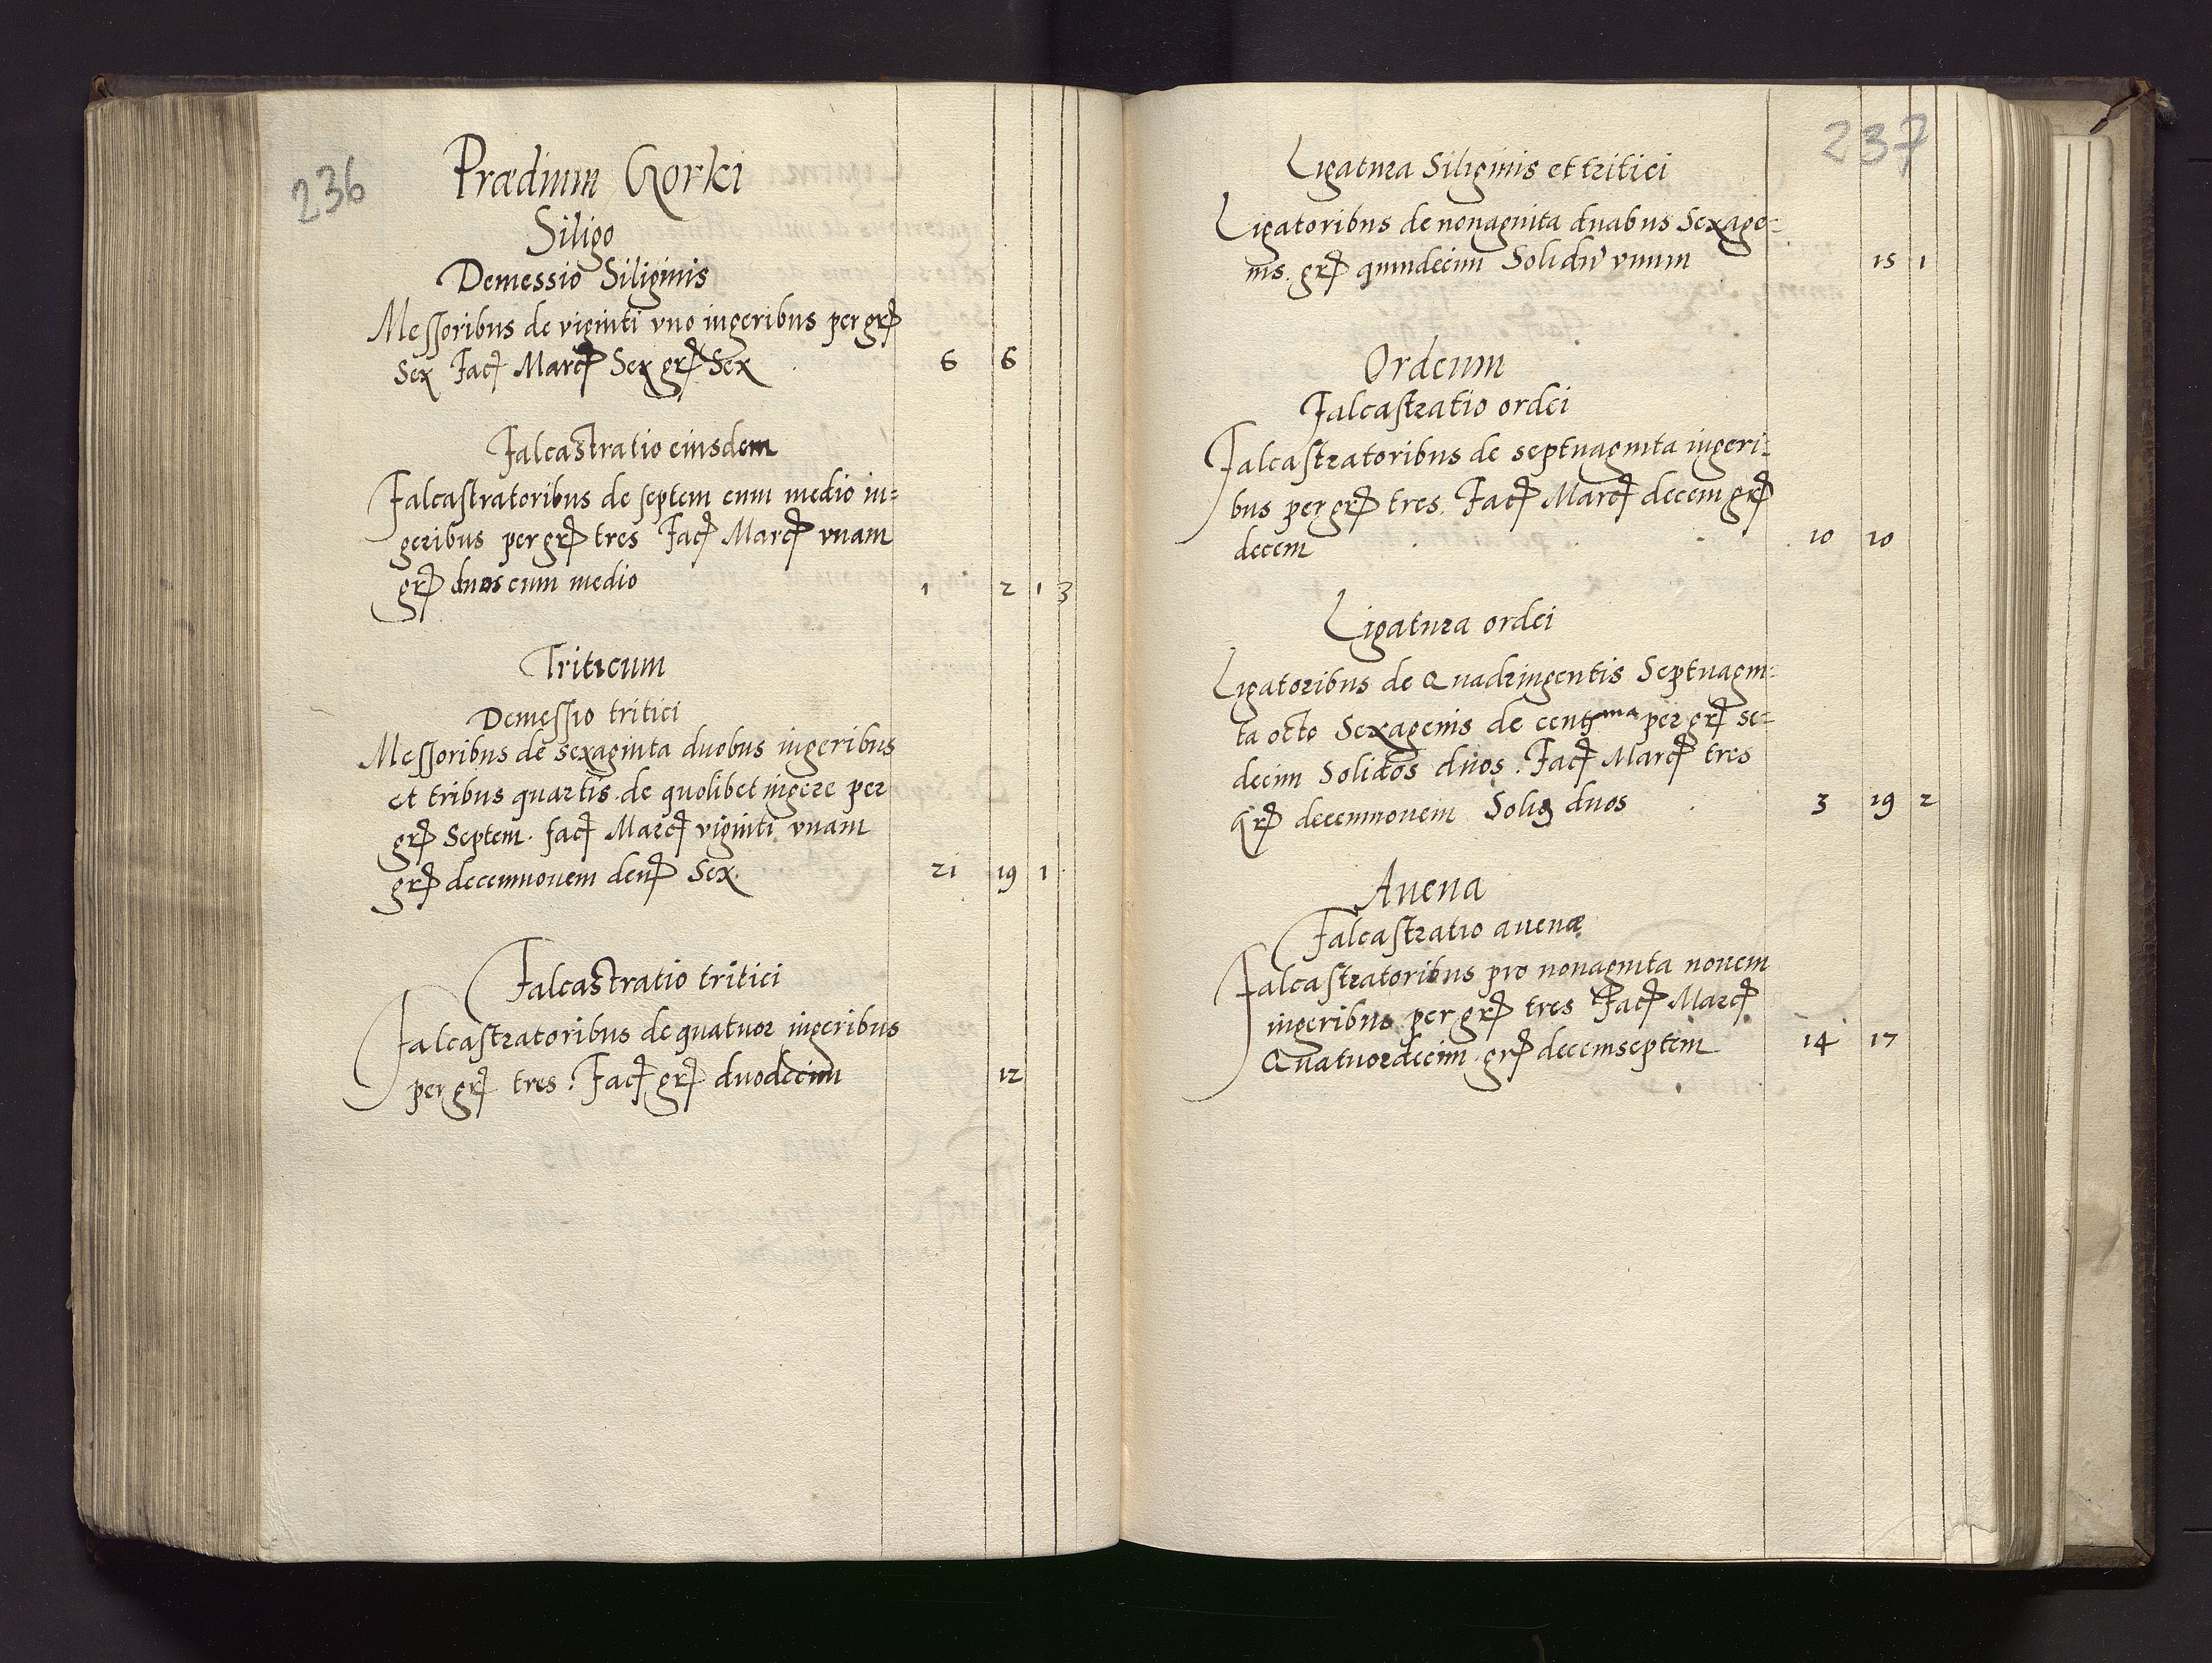 236
Prædium Gorki
Siligo
Demessio Siliginis
Messoribus de viginti vno iugeribus per gr
Sex Fac Marc Sex gr Sex 6 6
Falcastratio eiusdem
Falcastratoribus de septem cum medio iu=
geribus per gr tres Fac Marc vnam
gr duos cum medio 1 2 1 3
Triticum
Demessio tritici
Messoribus de sexaginta duobus iugeribus
et tribus quartis de quolibet iugere per
gr Septem. fac Marc viginti vnam
gr decemnouem den Sex. 21 19 1
Falcastratio tritici
Falcastratoribus de quatuor iugeribus
per gr tres. Fac gr duodecim 12
237
Ligatura Siliginis et tritici
Ligatoribus de nonaginta duabus Sexage=
nis. gr quindecim Solidū vnum 15 1
Ordeum
Falcastratio ordei
Falcastratoribus de septuaginta iugeri=
bus per gr tres. Fac Marc decem gr
decem 10 10
Ligatura ordei
Ligatoribus de Quadringentis Septuagin=
ta octo Sexagenis de centena per gr se=
decim Solidos duos. Fac Marc tres
gr decemnouem Solid duos 3 19 2
Auena
Falcastratio auenæ
Falcastratoribus pro nonaginta nouem
iugeribus per gr tres Fac Marc
Quatuordecim gr decemseptem 14 17